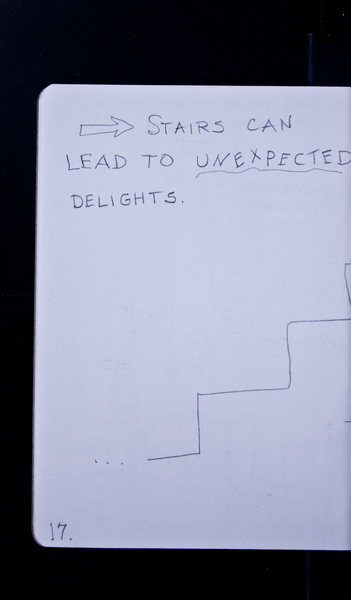 STAIRS CAN
LEAD TO UNEXPECTED
DELIGHTS.
...
17.